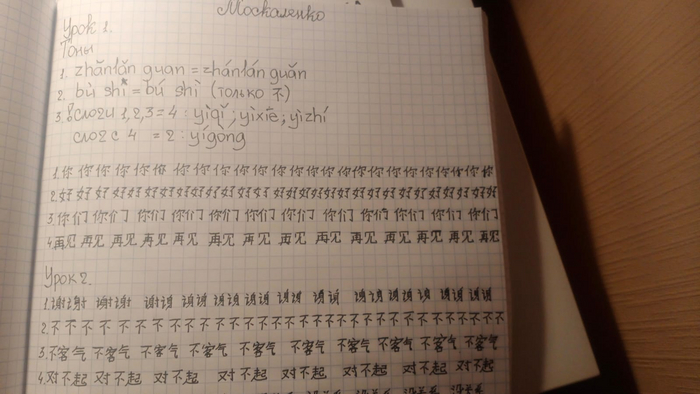 Москаленко
Урок 1.
Тоны
1. zhǎnlǎn guan = zhánlán guǎn
2. bù shì = bú shì (только 不)
3. слоги 1,2,3 = 4 : yìqǐ; yìxiē; yìzhí
слог с 4 = 2 : yígòng
1. 你 你 你 你 你 你 你 你 你 你 你 你 你 你 你 你 你 你 你 你 你 你 你 你 你
2. 好 好 好 好 好 好 好 好 好 好 好 好 好 好 好 好 好 好 好 好 好 好 好 好 好 好
3. 你们 你们 你们 你们 你们 你们 你们 你们 你们 你们 你们 你们 你们
4. 再见 再见 再见 再见 再见 再见 再见 再见 再见 再见 再见 再见 再见 再见
Урок 2.
1. 谢谢 谢谢 谢谢 谢谢 谢谢 谢谢 谢谢 谢谢 谢谢 谢谢 谢谢 谢谢 谢谢
2. 不 不 不 不 不 不 不 不 不 不 不 不 不 不 不 不 不 不 不 不 不 不 不 不 不 不 不
3. 不客气 不客气 不客气 不客气 不客气 不客气 不客气 不客气 不客气 不客气
4. 对不起 对不起 对不起 对不起 对不起 对不起 对不起 对不起
没关系 没关系